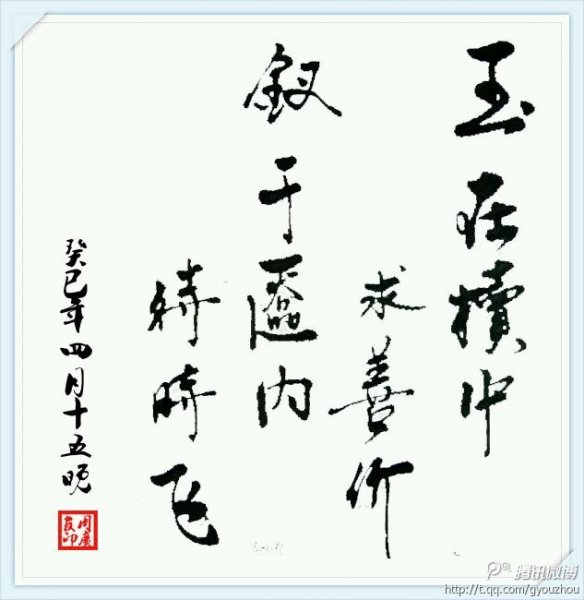 玉在櫝中
求善价
釵于匲内
待時飞
癸巳年四月十五晚
周廣友印
腾讯微博
http://t.qq.com/gyouzhou